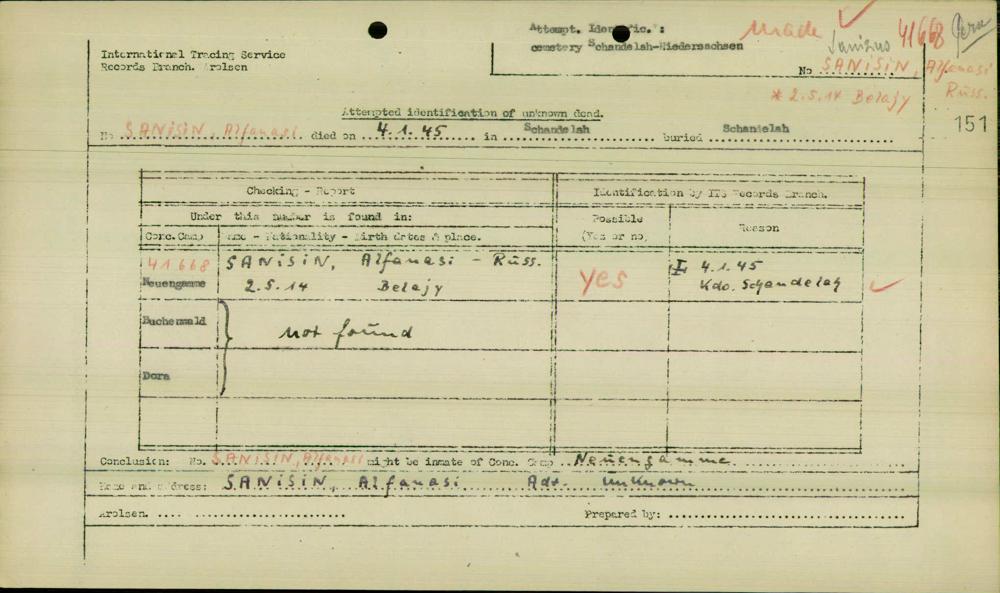 Attempt. Identific.:
cemetery Schandelah-Niedersachsen
made
41668
Sanisus
International Tracing Service
Records Branch. Arolsen
No SANiSiN, Alfanasi
Rüss.
* 2.5.14 Belajy
151
Attempted identification of unknown dead.
No SANiSiN, Alfanasi died on 4.1.45 in Schandelah buried Schandelah
Checking - Report
Identification by ITS Records Branch.
Under this number is found in:
Possible
(Yes or no)
Reason
Conc.Camp
Name - Nationality - Birth dates & place.
41668
SANiSiN, Alfanasi - Rüss.
Neuengamme
2.5.14 Belajy
yes
4.1.45
Kdo. Schandelah
Buchenwald
not found
Dora
Conclusion: No. SANiSiN, Alfanasi might be inmate of Conc. Camp Neuengamme
Name and address: SANiSiN, Alfanasi Adr. unknown
Arolsen. .... ....................
Prepared by: ..............................